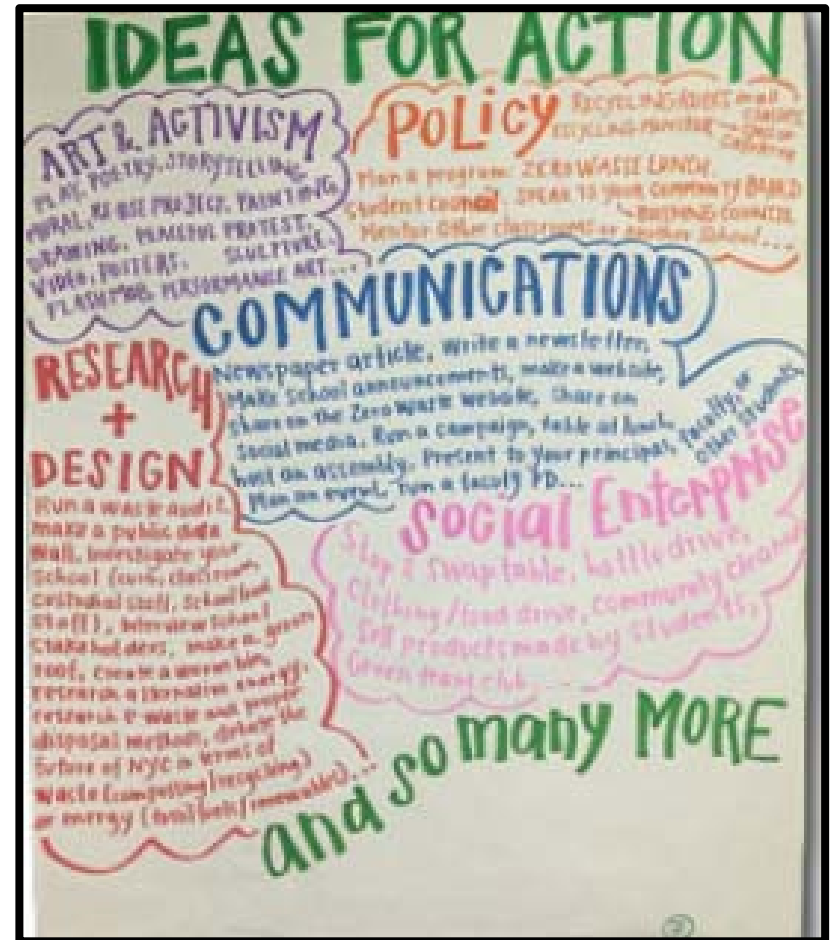 IDEAS FOR ACTION
ART & ACTIVISM
PLAY, POETRY, STORYTELLING
MURAL, RE-USE PROJECT, PAINTING
DRAWING, PEACEFUL PROTEST,
VIDEO, POSTERS, SCULPTURE,
FLASH MOB, PERFORMANCE ART...
POLICY
RECYCLING
RECYCLING MONITOR
Plan a program: ZERO WASTE LUNCH,
Student Council. SPEAK TO YOUR COMMUNITY BOARD
Mentor Other classrooms or another School...
COMMUNICATIONS
Newspaper article, Write a newsletter,
Make School announcements, make a website,
Share on the Zero Waste website, Share on
Social media, Run a campaign, table at lunch,
host an assembly. Present to your principal, faculty, or
Other Students
Plan an event, run a faculty PD...
RESEARCH
+
DESIGN
Run a waste audit,
make a public data
Wall, investigate your
School (
custodial staff, School food
Staff), interview School
Stakeholders, make a green
roof, create a worm bin,
research alternative energy,
research E-waste and proper
disposal method, debate the
future of NYC in terms of
Waste (composting/recycling)
or energy (fossil fuels/renewables)...
Social Enterprise
Stop & Swap table, bottle drive,
Clothing/food drive, Community Cleanup
Sell products made by Students,
Green team club...
and so many MORE
2